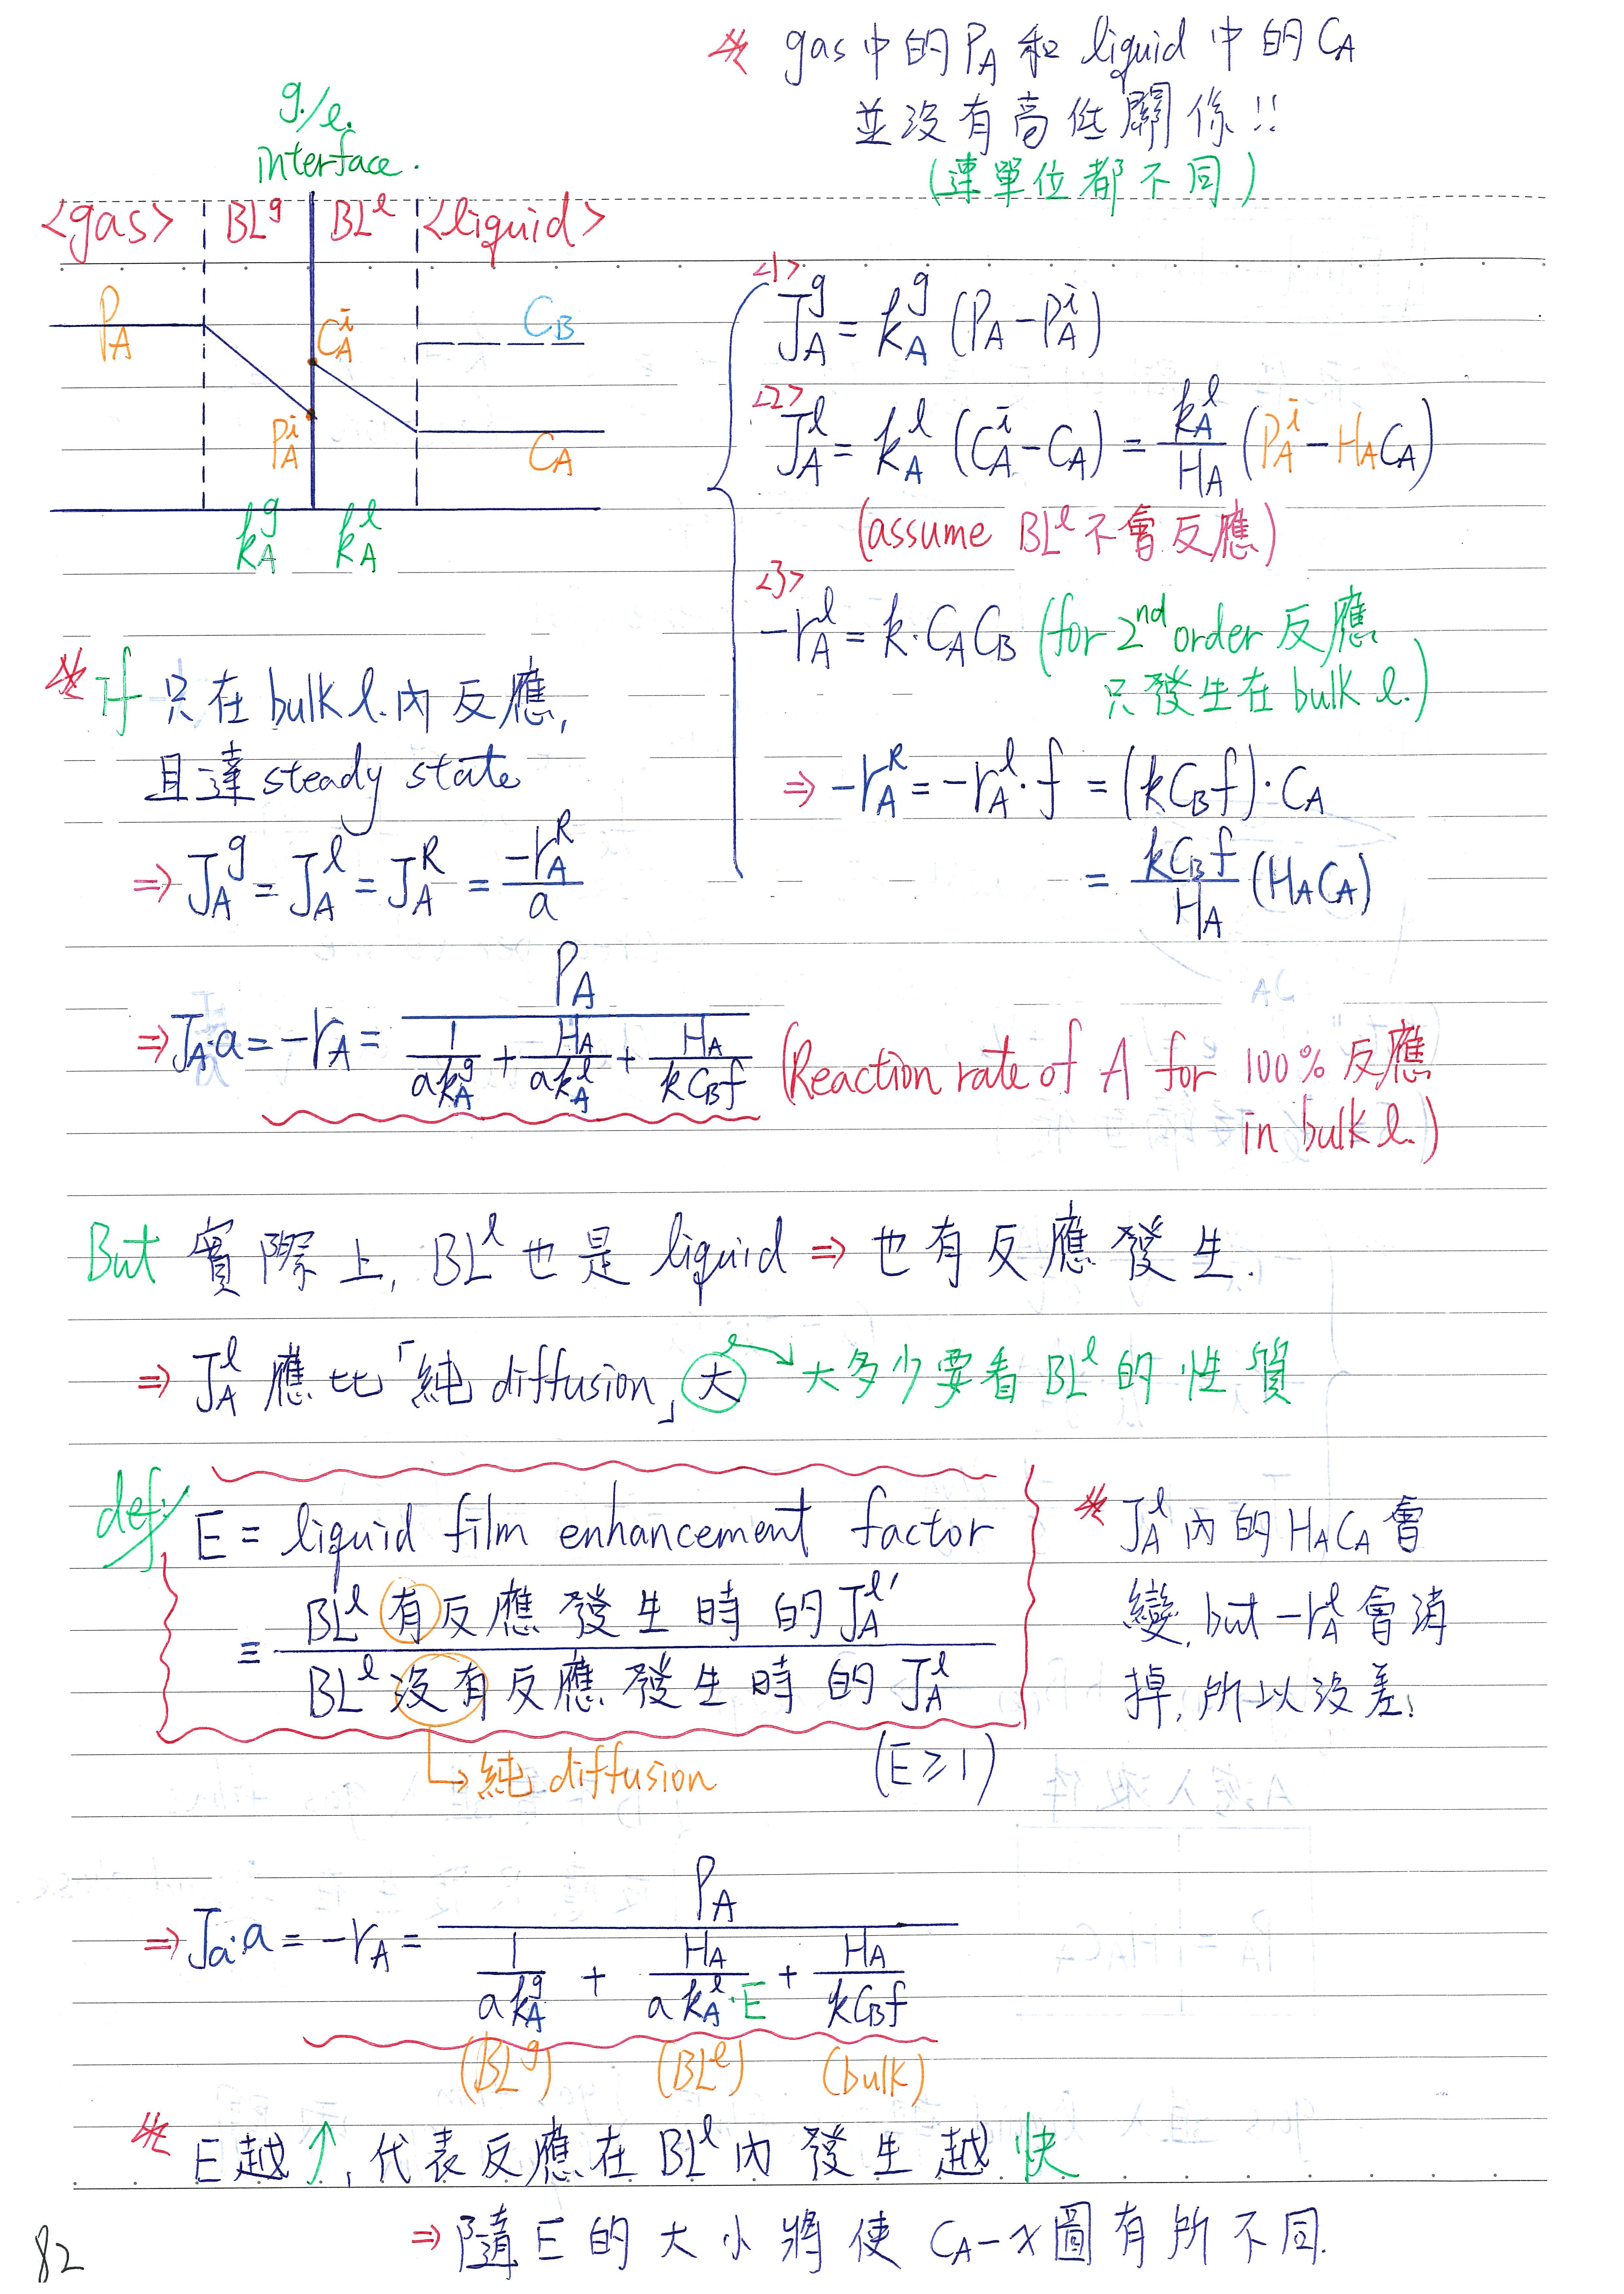 * gas中的 P_A 和 liquid 中的 C_A
並沒有高低關係!!
(連單位都不同)
g./l.
interface.
<gas> BL^g BL^l <liquid>
P_A
C_A^i
C_B
P_A^i
C_A
k_A^g k_A^l
<1> J_A^g = k_A^g (P_A - P_A^i)
<2> J_A^l = k_A^l (C_A^i - C_A) = k_A^l/H_A (P_A^i - H_A C_A)
(assume BL^l 不會反應)
<3> -r_A^l = k·C_A C_B (for 2nd order 反應
只發生在 bulk l.)
⇒ -r_A^R = -r_A^l·f = (kC_Bf)·C_A
= kC_Bf/H_A (H_A C_A)
* If 只在 bulk l. 內反應,
且達 steady state
⇒ J_A^g = J_A^l = J_A^R = -r_A^R/a
⇒ J_A·a = -r_A = P_A / (1/(ak_A^g) + H_A/(ak_A^l) + H_A/(kC_Bf)) (Reaction rate of A for 100% 反應
in bulk l.)
But 實際上, BL^l 也是 liquid ⇒ 也有反應發生.
⇒ J_A^l 應比「純 diffusion」大 → 大多少要看 BL^l 的性質
def: E = liquid film enhancement factor
≡ BL^l 有反應發生時的 J_A^l'
BL^l 沒有反應發生時的 J_A^l
↳ 純 diffusion (E ≥ 1)
* J_A^l 內的 H_A C_A 會
變, but -r_A^l 會消
掉, 所以沒差.
⇒ J_a·a = -r_A = P_A / (1/(ak_A^g) + H_A/(ak_A^l·E) + H_A/(kC_Bf))
(BL^g) (BL^l) (bulk)
* E越↑, 代表反應在 BL^l 內發生越快
⇒ 隨 E 的大小將使 C_A-x 圖有所不同.
82